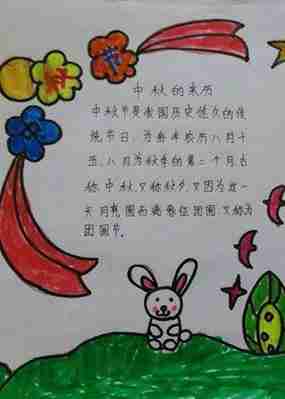 中秋的来历
中秋节是我国历史悠久的传
统节日,为每年农历八月十
五,八月为秋季的第二个月古
称中秋,又称秋夕,又因为这一
天月亮圆而满象征团圆,又称为
团圆节。